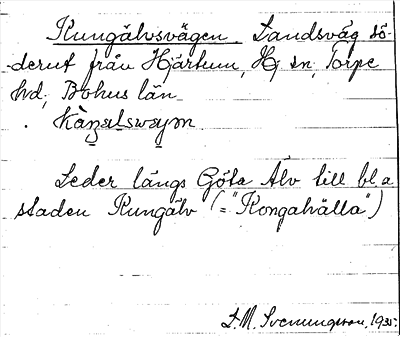 Kungälvsvägen. Landsväg sö-
derut från Hjärtum, Hj sn, Torpe
hd, Bohus län
Leder längs Göta Älv till bl a
staden Kungälv (="Kongahälla")
S.M. Svenungsson, 1935.